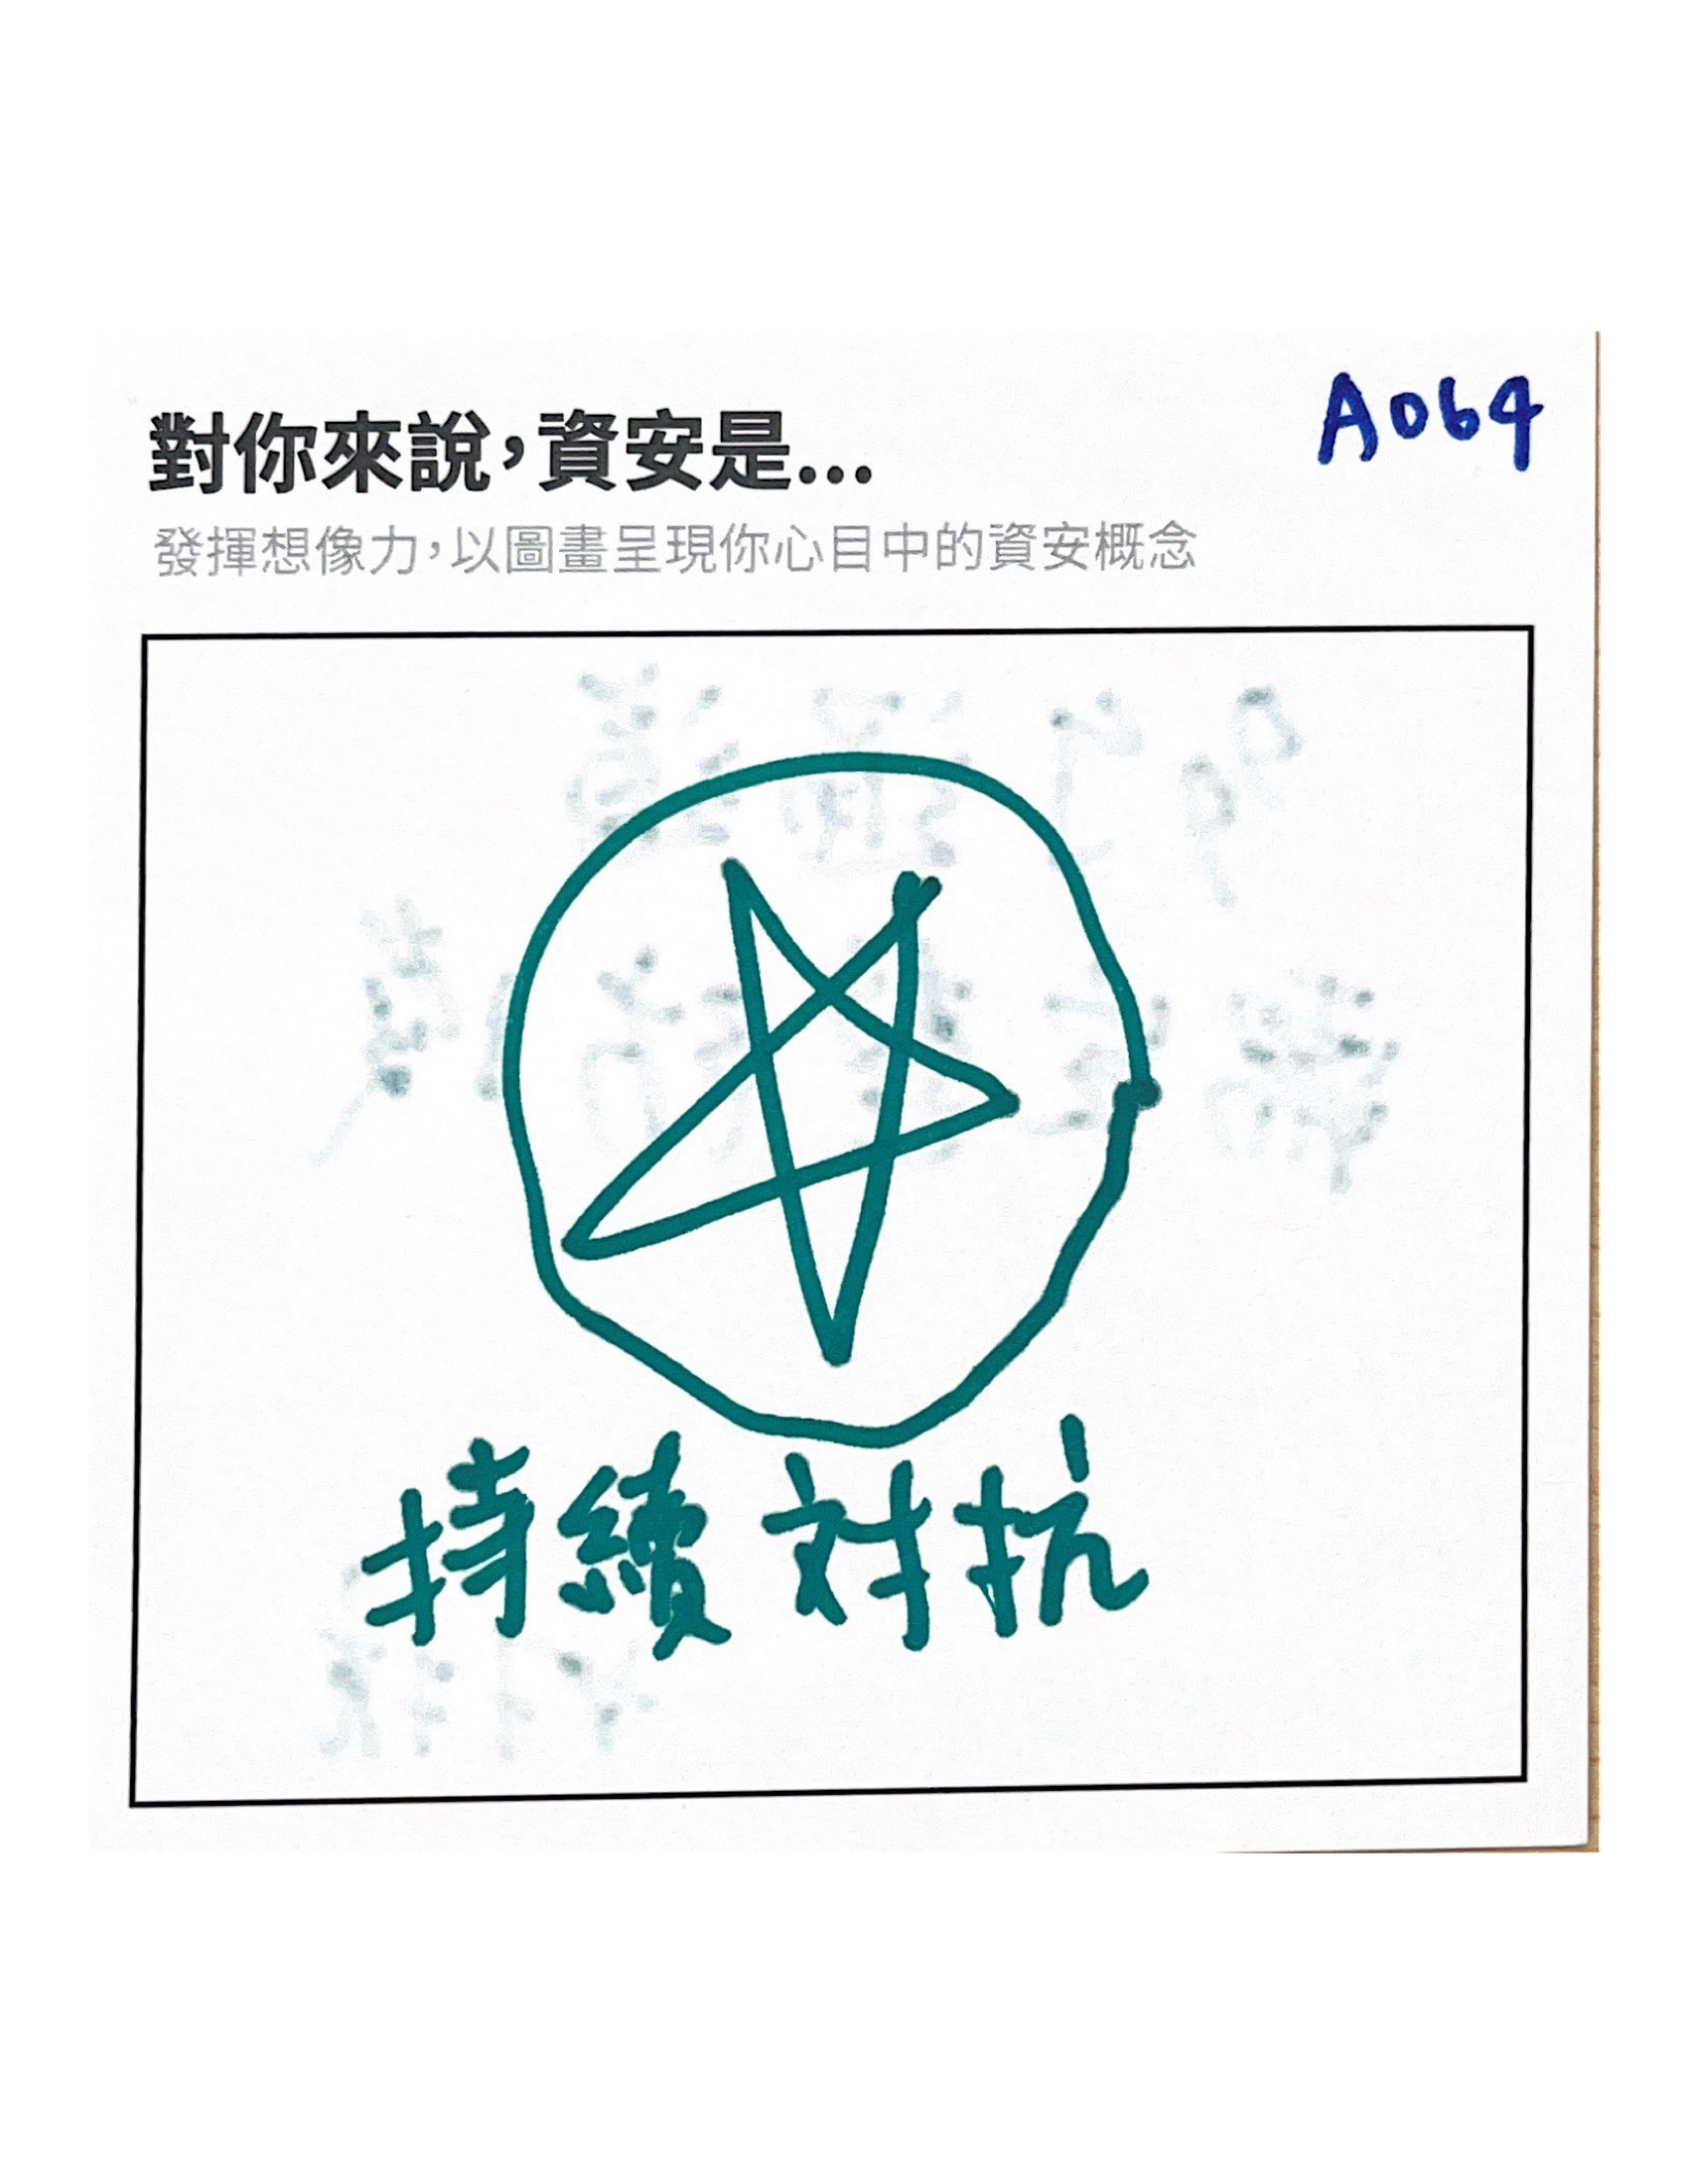 A064
對你來說,資安是...
發揮想像力,以圖畫呈現你心目中的資安概念
持續対抗